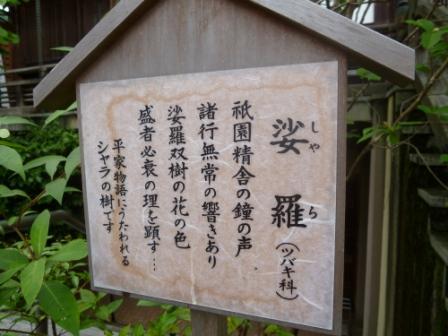 娑羅（ツバキ科）
しゃら
祇園精舎の鐘の声
諸行無常の響きあり
娑羅双樹の花の色
盛者必衰の理を顕す…
平家物語にうたわれる
シャラの樹です